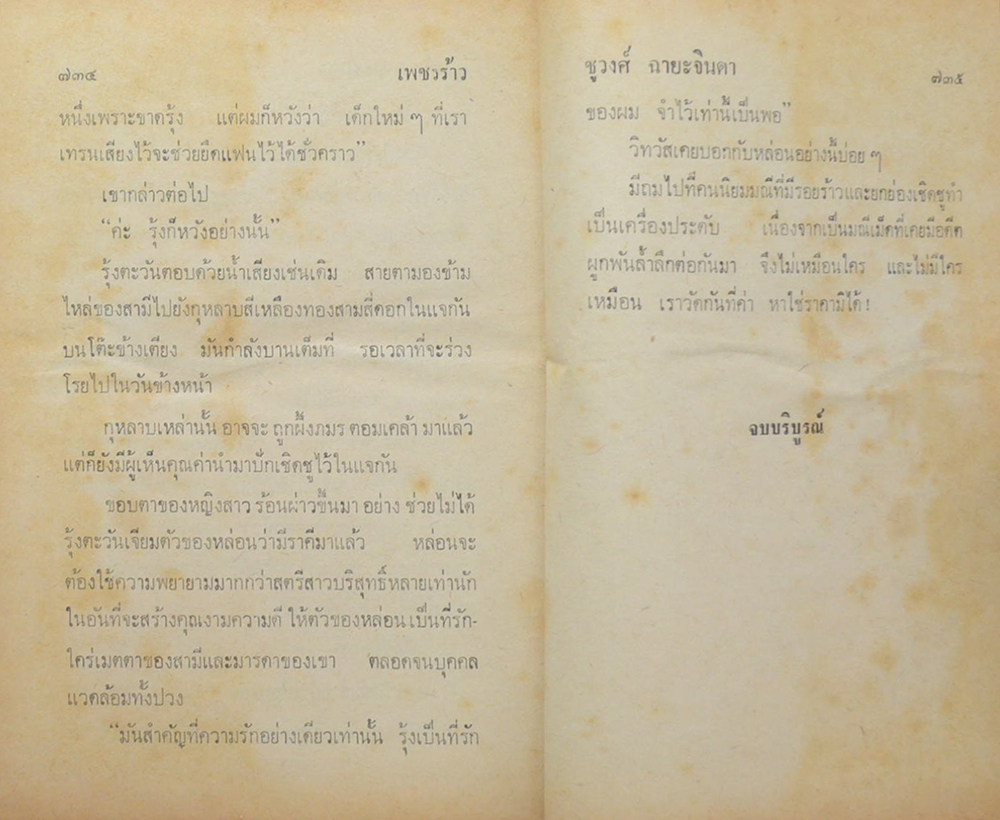 ๗๓๔ เพชรร้าว
หนึ่งเพราะขาดรุ้ง แต่ผมก็หวังว่า เด็กใหม่ ๆ ที่เรา
เทรนเสียงไว้จะช่วยยึดแฟนไว้ได้ชั่วคราว”
เขากล่าวต่อไป
“ค่ะ รุ้งก็หวังอย่างนั้น”
รุ้งตะวันตอบด้วยน้ำเสียงเช่นเดิม สายตามองข้าม
ไหล่ของสามีไปยังกุหลาบสีเหลืองทองสามสี่ดอกในแจกัน
บนโต๊ะข้างเตียง มันกำลังบานเต็มที่ รอเวลาที่จะร่วง
โรยไปในวันข้างหน้า
กุหลาบเหล่านั้น อาจจะ ถูกผึ้งภมร ตอมเคล้า มาแล้ว
แต่ก็ยังมีผู้เห็นคุณค่านำมาปักเชิดชูไว้ในแจกัน
ขอบตาของหญิงสาว ร้อนผ่าวขึ้นมา อย่าง ช่วยไม่ได้
รุ้งตะวันเจียมตัวของหล่อนว่ามีราคีมาแล้ว หล่อนจะ
ต้องใช้ความพยายามมากกว่าสตรีสาวบริสุทธิ์หลายเท่านัก
ในอันที่จะสร้างคุณงามความดี ให้ตัวของหล่อน เป็นที่รัก-
ใคร่เมตตาของสามีและมารดาของเขา ตลอดจนบุคคล
แวดล้อมทั้งปวง
“มันสำคัญที่ความรักอย่างเดียวเท่านั้น รุ้งเป็นที่รัก
ชูวงศ์ ฉายะจินดา ๗๓๕
ของผม จำไว้เท่านี้เป็นพอ”
วิทวัสเคยบอกกับหล่อนอย่างนี้บ่อย ๆ
มีถมไปที่คนนิยมมณีที่มีรอยร้าวและยกย่องเชิดชูทำ
เป็นเครื่องประดับ เนื่องจากเป็นมณีเม็ดที่เคยมีอดีต
ผูกพันล้ำลึกต่อกันมา จึงไม่เหมือนใคร และไม่มีใคร
เหมือน เราวัดกันที่ค่า หาใช่ราคามิได้!
จบบริบูรณ์